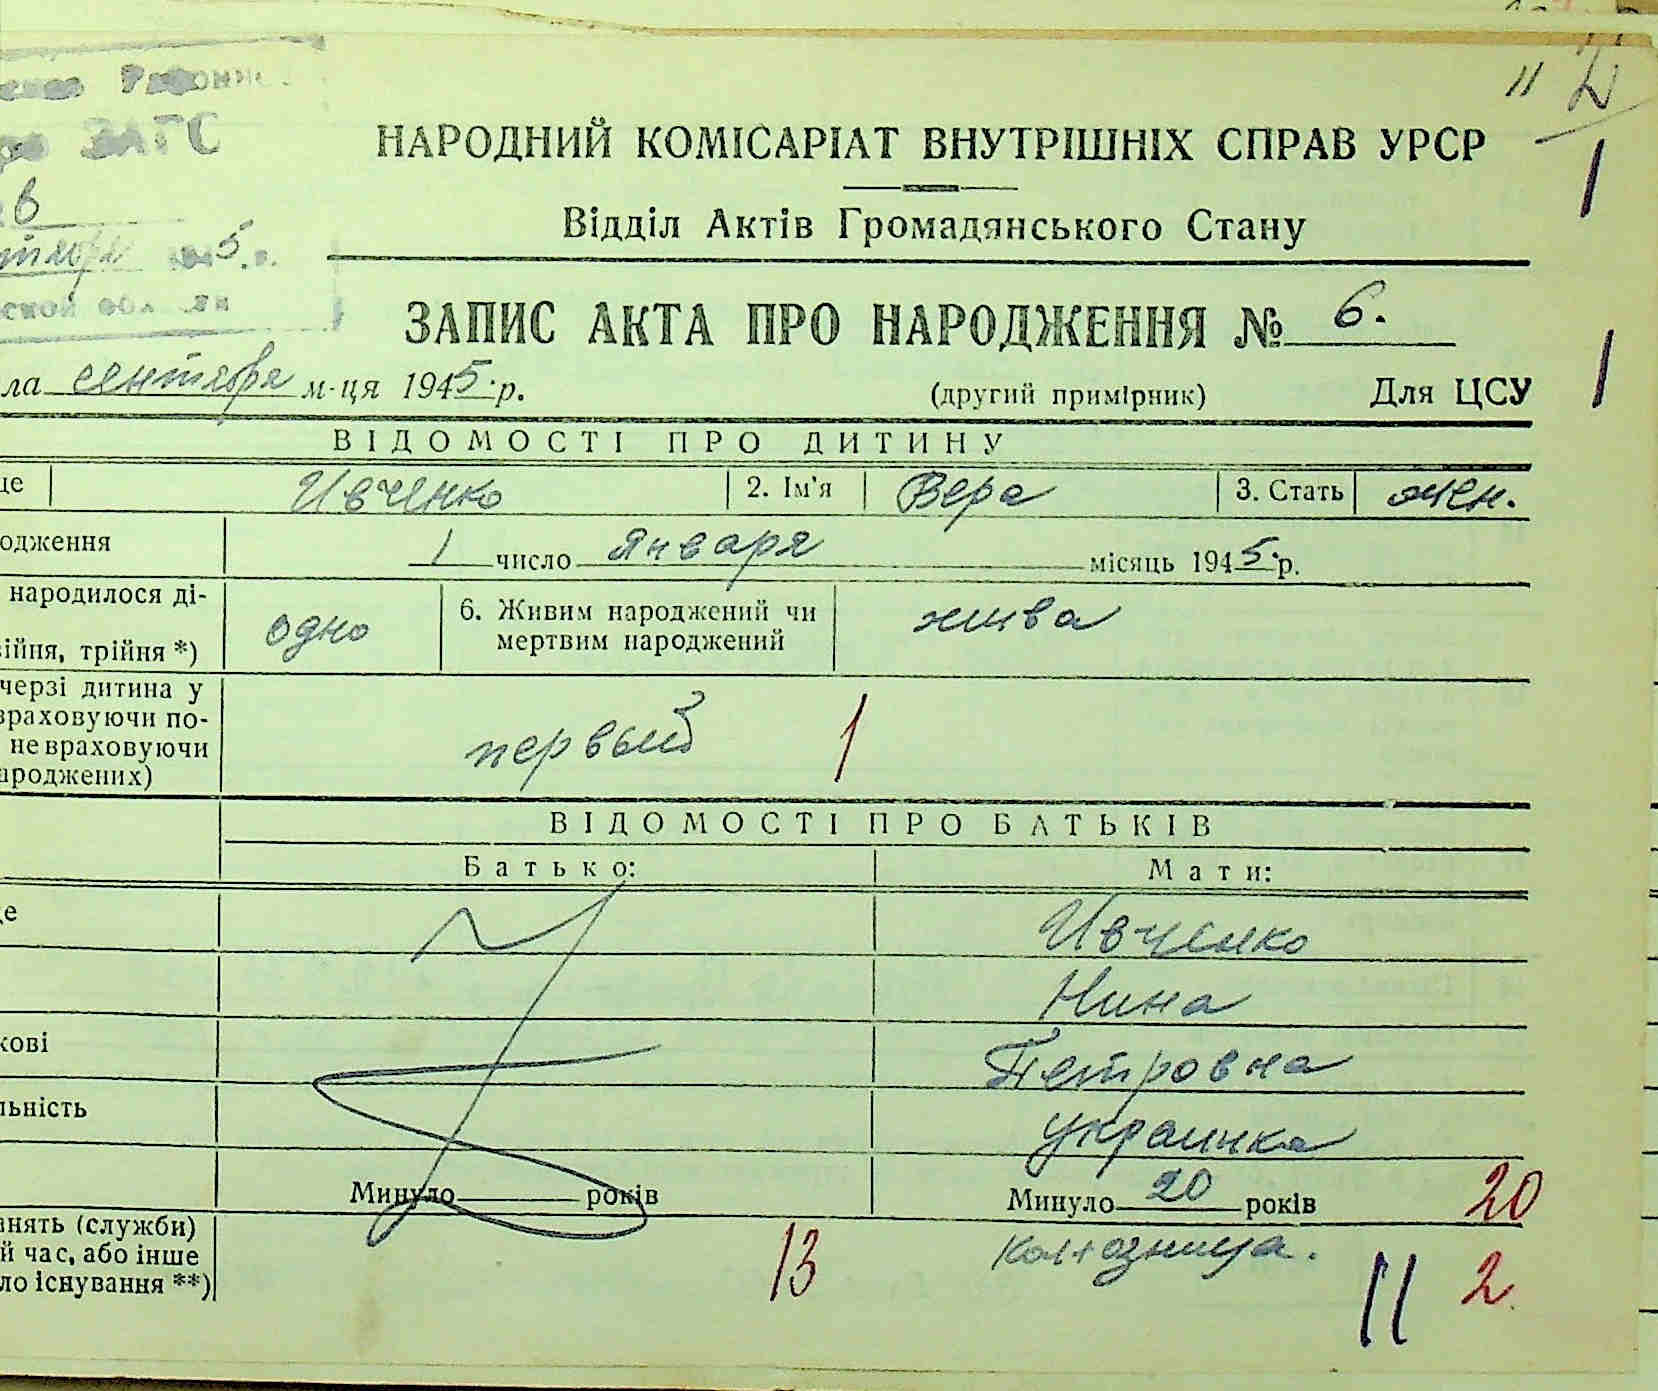 ЗАГС
НАРОДНИЙ КОМІСАРІАТ ВНУТРІШНІХ СПРАВ УРСР
Відділ Актів Громадянського Стану
ЗАПИС АКТА ПРО НАРОДЖЕННЯ № 6.
ла сентября м-ця 1945 р.
(другий примірник) Для ЦСУ
ВІДОМОСТІ ПРО ДИТИНУ
це Ивченко 2. Ім'я Вера 3. Стать жен.
одження 1 число января місяць 1945 р.
народилося ді-
ійня, трійня *) одно 6. Живим народжений чи
мертвим народжений жива
черзі дитина у
враховуючи по-
не враховуючи
ароджених) первый 1
ВІДОМОСТІ ПРО БАТЬКІВ
Батько: Мати:
це Ивченко
Нина
кові Петровна
льність украинка
Минуло років Минуло 20 років 20
анять (служби)
й час, або інше
ло існування **) 13 колхозница. 11 2